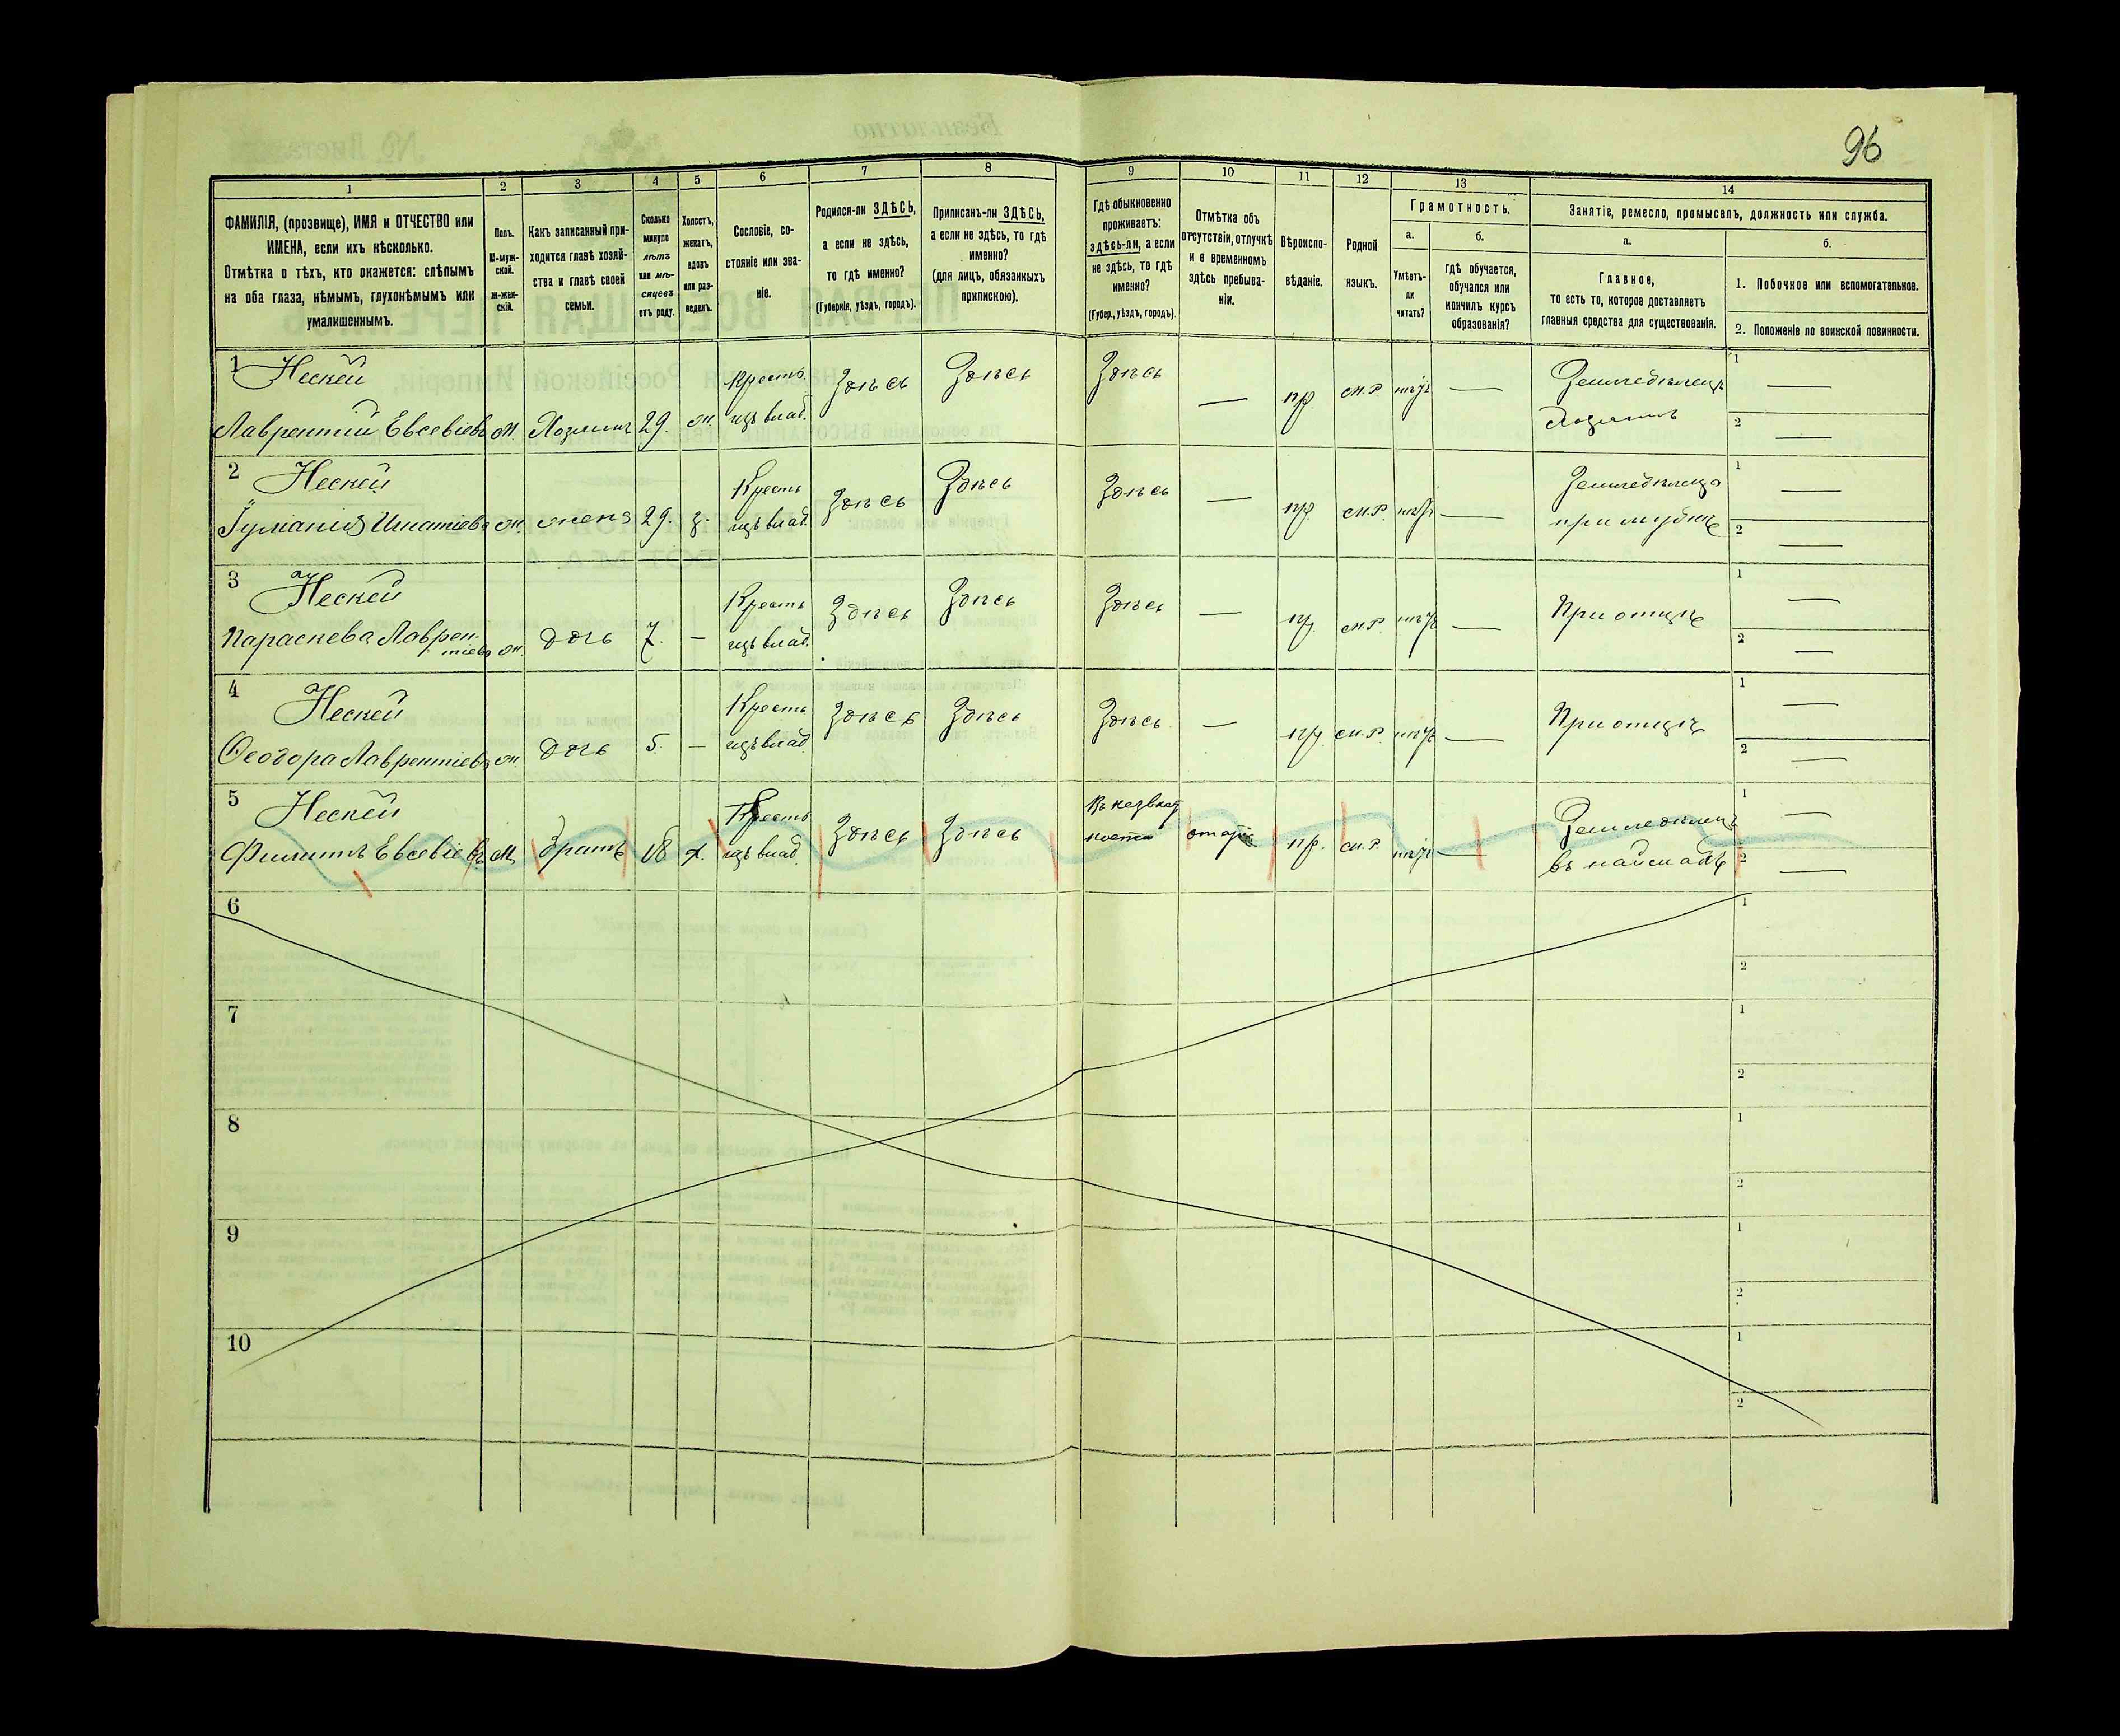 96
1
2
3
4
5
6
7
8
9
10
11
12
13
14
ФАМИЛІЯ, (прозвище), ИМЯ и ОТЧЕСТВО или
ИМЕНА, если ихъ нѣсколько.
Отмѣтка о тѣхъ, кто окажется: слѣпымъ
на оба глаза, нѣмымъ, глухонѣмымъ или
умалишеннымъ.
Полъ.
М-муж-
ской.
Ж-жен-
скій.
Какъ записанный при-
ходится главѣ хозяй-
ства и главѣ своей
семьи.
Сколько
минуло
лѣтъ
или мѣ-
сяцевъ
отъ роду.
Холостъ,
женатъ,
вдовъ
или раз-
веденъ.
Сословіе, со-
стояніе или зва-
ніе.
Родился-ли ЗДѢСЬ,
а если не здѣсь,
то гдѣ именно?
(Губернія, уѣздъ, городъ).
Приписанъ-ли ЗДѢСЬ,
а если не здѣсь, то гдѣ
именно?
(для лицъ, обязанныхъ
припискою).
Гдѣ обыкновенно
проживаетъ:
здѣсь-ли, а если
не здѣсь, то гдѣ
именно?
(Губер., уѣздъ, городъ).
Отмѣтка объ
отсутствіи, отлучкѣ
и о временномъ
здѣсь пребыва-
ніи.
Вѣроиспо-
вѣданіе.
Родной
языкъ.
Грамотность.
а.
Умѣетъ-
ли
читать?
б.
гдѣ обучается,
обучался или
кончилъ курсъ
образованія?
Занятіе, ремесло, промыселъ, должность или служба.
а.
Главное,
то есть то, которое доставляетъ
главныя средства для существованія.
б.
1. Побочное или вспомогательное.
2. Положеніе по воинской повинности.
1 Нескей
Лаврентій Евсевіевъ м. Хозяинъ 29. ж. Крестъ. изъ влад. Здѣсь Здѣсь Здѣсь — пр. м.р. нѣтъ — Земледѣлецъ
хозяинъ
1 —
2 —
2 Нескей
Игнатіева ж. жена 29. з. Крестъ изъ влад. Здѣсь Здѣсь Здѣсь — пр. м.р. нѣтъ — Земледѣлецъ
при мужѣ
1 —
2 —
3 Нескей
Параскева Лаврен-
тіева ж. дочь 7. — Крестъ изъ влад. Здѣсь Здѣсь Здѣсь — пр. м.р. нѣтъ — При отцѣ
1 —
2 —
4 Нескей
Ѳеодора Лаврентіева ж дочь 5. — Крестъ изъ влад. Здѣсь Здѣсь Здѣсь — пр. м.р. нѣтъ — При отцѣ
1 —
2 —
5 Нескей
Филипъ Евсевіевъ м. братъ 18 х. Крестъ изъ влад. Здѣсь Здѣсь пр. м.р. нѣтъ — Земледѣлецъ
1 —
2 —
6
1
2
7
1
2
8
1
2
9
1
2
10
1
2